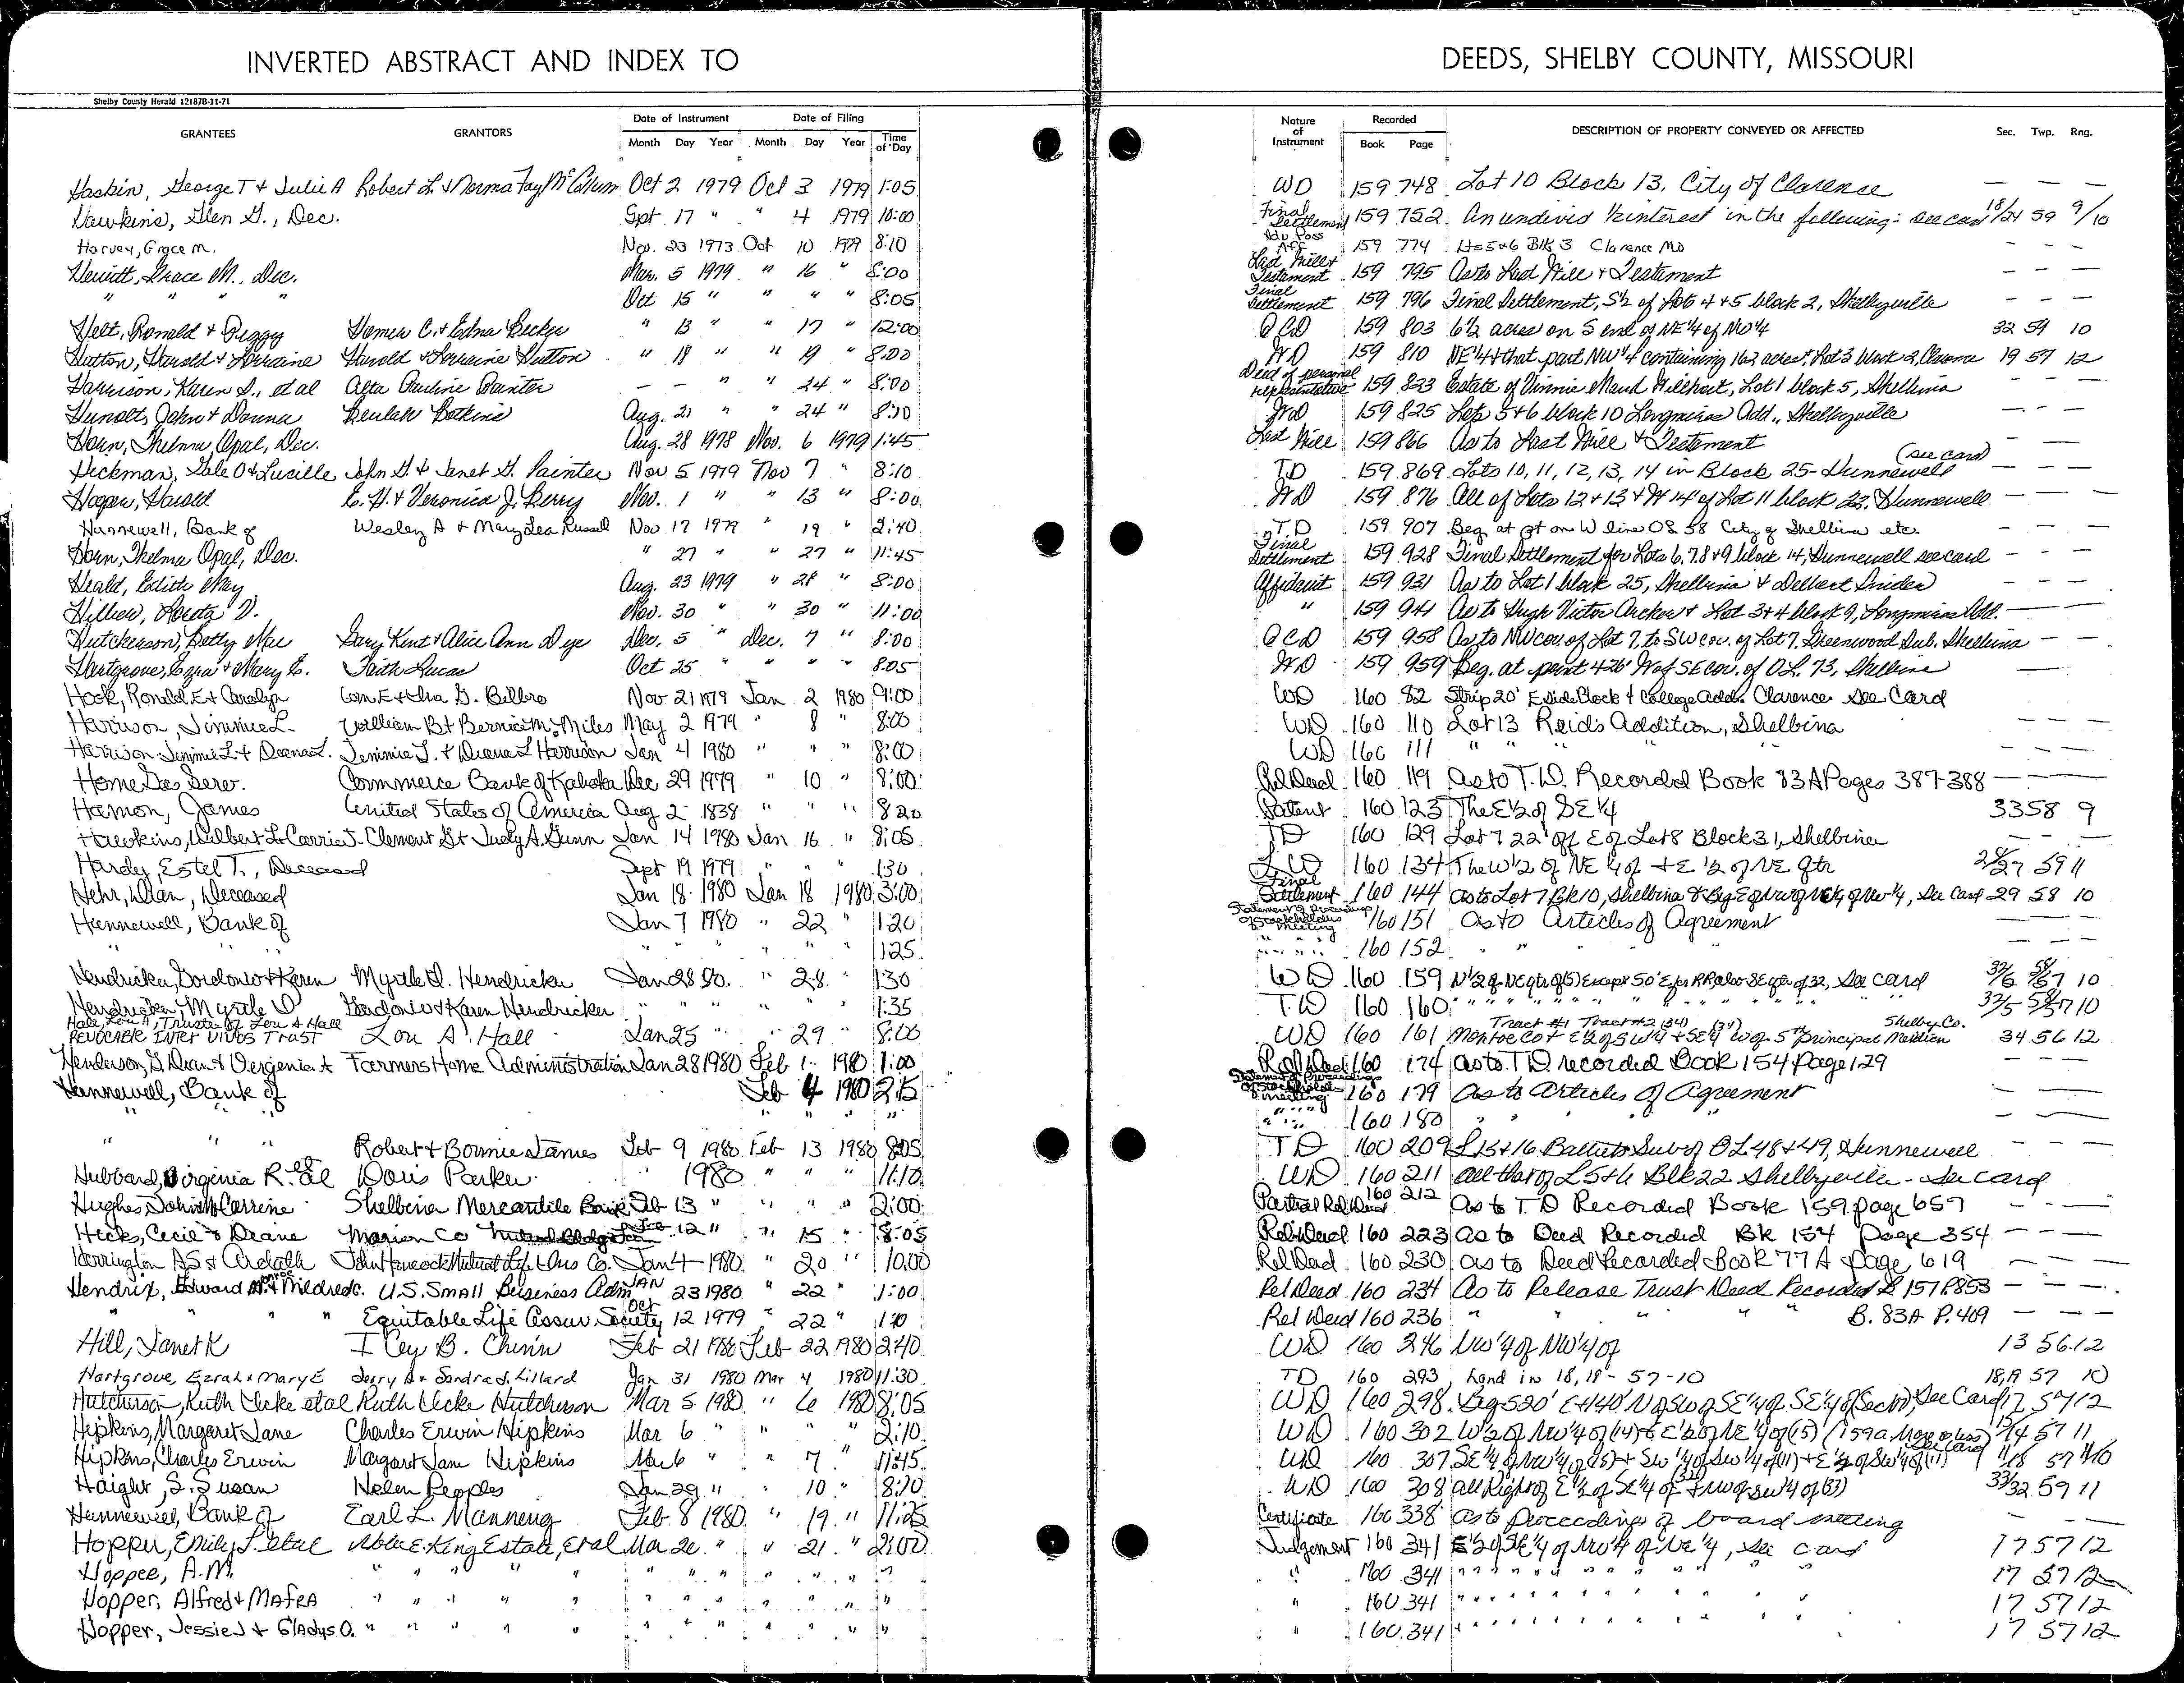 INVERTED ABSTRACT AND INDEX TO DEEDS, SHELBY COUNTY, MISSOURI
Shelby County Herald 12187B-11-71
Date of Instrument Date of Filing Nature of Instrument Recorded
GRANTEES GRANTORS Month Day Year Month Day Year Time of Day Book Page DESCRIPTION OF PROPERTY CONVEYED OR AFFECTED Sec. Twp. Rng.
Haskin, George T + Julie A Robert L. + Norma Fay McCollum Oct 2 1979 Oct 3 1979 1:05 WD 159 748 Lot 10 Block 13, City of Clarence — — —
Hawkins, Glen G., Dec. Spt. 17 " " 4 1979 10:00 Final Settlement 159 752 An undivid 1/2 interest in the following: see card 18/24 59 9/10
Harvey, Grace M. Nov. 23 1973 Oct 10 1979 8:10 Adv Poss Aff 159 774 Lts 5+6 Blk 3 Clarence Mo - - -
Hewitt, Grace M., Dec. Mar. 5 1979 " 16 " 8:00 Last Will + Testament 159 795 As to Last Will + Testament — — —
" " " " Oct 15 " " " " 8:05 Final Settlement 159 796 Final Settlement, S 1/2 of Lots 4+5 block 2, Shelbyville — — —
Helt, Ronald + Peggy Homer C. + Edna Becker " 13 " " 17 " 12:00 QCD 159 803 6 1/2 acres on S end of NE 1/4 of NW 1/4 32 59 10
Hutton, Harold + Lorraine Harold + Lorraine Hutton " 18 " " 19 " 8:00 WD 159 810 NE 1/4 + that part NW 1/4 containing 162 acres, Lot 3 block 2, Clarence 19 57 12
Harrison, Karen S., et al Alta Pauline Painter — — " " 24 " 8:00 Deed of personal representative 159 823 Estate of Vinnie Maud Wilhoit, Lot 1 block 5, Shelbina — — —
Hunolt, John + Donna Beulah Botkins Aug. 21 " " 24 " 8:30 WD 159 825 Lots 5+6 block 10 Longmires Add., Shelbyville — — —
Horn, Thelma Opal, Dec. Aug. 28 1978 Nov. 6 1979 1:45 Last Will 159 866 As to Last Will + Testament — —
Heckman, Gale O + Lucille John G. + Janet G. Painter Nov 5 1979 Nov 7 " 8:10 TD 159 869 Lots 10, 11, 12, 13, 14 in Block 25 - Hunnewell (see card) — — —
Hagan, Harold E. H. + Veronica J. Berry Nov. 1 " " 13 " 8:00 WD 159 876 All of Lots 12 + 13 + W 14' of Lot 11 block 22, Hunnewell — — —
Hunnewell, Bank of Wesley A + Mary Lea Russell Nov 17 1979 " 19 " 2:40 TD 159 907 Beg at pt on W line OB 58 City of Shelbina etc. — — —
Horn, Thelma Opal, Dec. " 27 " " 27 " 11:45 Final Settlement 159 928 Final Settlement for Lots 6, 7, 8 + 9 block 14, Hunnewell see card - - —
Heald, Edith May Aug. 23 1979 " 28 " 8:00 Affidavit 159 931 As to Lot 1 block 25, Shelbina + Delbert Snider - - —
Hillier, Loreta V. Nov. 30 " " 30 " 11:00 " 159 941 As to Hugh Victor Archer + Lot 3+4 block 9, Longmires Add. — — —
Hutcherson, Betty Mae Gary Kent + Alice Ann Dye Dec. 5 " Dec. 7 " 8:00 QCD 159 958 As to NW cor of Lot 7, to SW cor. of Lot 7, Greenwood Sub. Shelbina — —
Hartgrove, Ezra + Mary E. Faith Lucas Oct 25 " " " " 8:05 WD 159 959 Beg. at point 426' W of SE cor. of O.L. 73, Shelbina —
Hock, Ronald E + Carolyn Wm. E + Elva G. Billbro Nov 21 1979 Jan 2 1980 9:00 WD 160 82 Strip 20' E side Block 4 College Addn. Clarence See Card
Harrison, Jimmie L. William B + Bernice M. Miles May 2 1979 " 8 " 8:00 WD 160 110 Lot 13 Reid's Addition, Shelbina — — —
Harrison Jimmie L + Deana L. Jimmie L. + Deana L Harrison Jan 4 1980 " " " 8:00 WD 160 111 " " " " — — —
Home Gas Serv. Commerce Bank of Kahoka Dec 29 1979 " 10 " 8:00 Rel Deed 160 119 As to T.D. Recorded Book 83A Pages 387-388 — — —
Hamon, James United States of America Aug 2 1838 " " " 8:20 Patent 160 123 The E 1/2 of SE 1/4 33 58 9
Hawkins, Wilbert L + Carrie J. Clement G + Judy A. Gunn Jan 14 1980 Jan 16 " 8:05 TD 160 129 Lot 7 22' off E of Lot 8 Block 31, Shelbina — — —
Hardy, Estel T., Deceased Sept 19 1979 " " " 1:30 160 134 The W 1/2 of NE 1/4 of + E 1/2 of NE Qtr 59 11
Hehr, Dean, Deceased Jan 18 1980 Jan 18 1980 3:00 Final Settlement 160 144 As to Lot 7 Bk 10, Shelbina + Beg E of NW of NE 1/4 of NW 1/4, See Card 29 58 10
Hunnewell, Bank of Jan 7 1980 " 22 " 1:20 Statement of Proceedings of Stockholders Meeting 160 151 As to Articles of Agreement — — —
" " " " " " " 1:25 " " " 160 152 " " — — —
Hendricker, Gordon W + Karen Myrtle D. Hendricker Jan 28 80 " 28 " 1:30 WD 160 159 N 1/2 of NE qtr of (5) Except 50' E for RR also SE qtr of 32, See Card 10
Hendricker, Myrtle D Gordon W + Karen Hendricker " " " " " " 1:35 T.D. 160 160 " " " " " " 32/5 10
Hall, Lou A, Trustee of Lou A Hall
REVOCABLE INTER VIVOS TRUST Lou A. Hall Jan 25 " " 29 " 8:00 WD 160 161 Tract #1 Tract #2 (34) (34) Shelby Co. Monroe Co + E 1/2 of SW 1/4 + SE 1/4 W of 5th Principal Meridian 34 56 12
Henderson, G Dean + Virginia A Farmers Home Administration Jan 28 1980 Feb 1 1980 1:00 Rel Deed 160 174 As to T.D. recorded Book 154 Page 129 — — —
Hunnewell, Bank of Feb 4 1980 2:15 Statement of Proceedings of Stockholders meeting 160 179 As to Articles of Agreement — — —
" " " " " " " 160 180 " " " — — —
" " " Robert + Bonnie James Feb 9 1980 Feb 13 1980 8:05 TD 160 209 L 15+16 Sub of OL 48+49, Hunnewell — — —
Hubbard, Virginia R. et al Doris Parker 1980 " " " 11:10 WD 160 211 All that of L 5+6 Blk 22 Shelbyville - See card
Hughes, John + Carrine Shelbina Mercantile Bank Feb 13 " " " " 2:00 Partial Rel Deed 160 212 As to T.D Recorded Book 159 page 657 — — —
Hicks, Cecil + Diane Marion Co Feb 12 " " 15 " 8:05 Rel Deed 160 223 As to Deed Recorded Bk 154 page 354 — — —
Herrington AS + Ardath John Hancock Mutual Life Ins Co. Jan 4 1980 " 20 " 10:00 Rel Deed 160 230 As to Deed Recorded Book 77A page 619 — — —
Hendrix, Edward Monroe + Mildred C. U.S. Small Business Adm JAN 23 1980 " 22 " 1:00 Rel Deed 160 234 As to Release Trust Deed Recorded B 157 P. 853 — — —
" " " Equitable Life Assur. Society Oct 12 1979 " 22 " 1:10 Rel Deed 160 236 " " " " B. 83A P. 409 — — —
Hill, Janet K I Cey B. Chinn Feb 21 1980 Feb 22 1980 2:40 WD 160 246 NW 1/4 of NW 1/4 of 13 56 12
Hartgrove, Ezrah + Mary E Jerry D + Sandra J. Lillard Jan 31 1980 Mar 4 1980 11:30 TD 160 293 Land in 18, 19 - 57-10 18,19 57 10
Hutcherson, Ruth Uicke et al Ruth Uicke Hutcherson Mar 5 1980 " 6 1980 8:05 WD 160 298 Beg 520' E + 1140' N of SW of SE 1/4 of SE 1/4 of (Sec 17), See Card 17 57 12
Hipkins, Margaret Jane Charles Erwin Hipkins Mar 6 " " " " 2:10 WD 160 302 W 1/2 of NW 1/4 of (14) + E 1/2 of NE 1/4 of (15) (159 a. More or less) 57 11
Hipkins, Charles Erwin Margaret Jane Hipkins Mar 6 " " 7 " 11:45 WD 160 307 SE 1/4 of NW 1/4 of (15) + SW 1/4 of SW 1/4 of (11) + E 1/2 of SW 1/4 of (11) See Card 57
Haight, S. Susan Helen Peoples Jan 29 " " 10 " 8:30 WD 160 308 All Right of E 1/2 of SE 1/4 of (32) + NW of SW 1/4 of (33) 33/32 59 11
Hunnewell, Bank of Earl L. Manneng Feb. 8 1980 " 19 " 11:25 Certificate 160 338 As to proceedings of board meeting — — —
Hopper, Emily J. et al Noble E. King Estate, et al Mar 20 " " 21 " 2:00 Judgement 160 341 E 1/2 of SE 1/4 of NW 1/4 of NE 1/4, See Card 17 57 12
Hopper, A.M. " " " " " " " " " " 160 341 " " " " " " 17 57 12
Hopper, Alfred + MAFRA " " " " " " " " " " " 160 341 " " " " " " 17 57 12
Hopper, Jessie J + Gladys O. " " " " " " " " " " " 160 341 " " " " " " 17 57 12